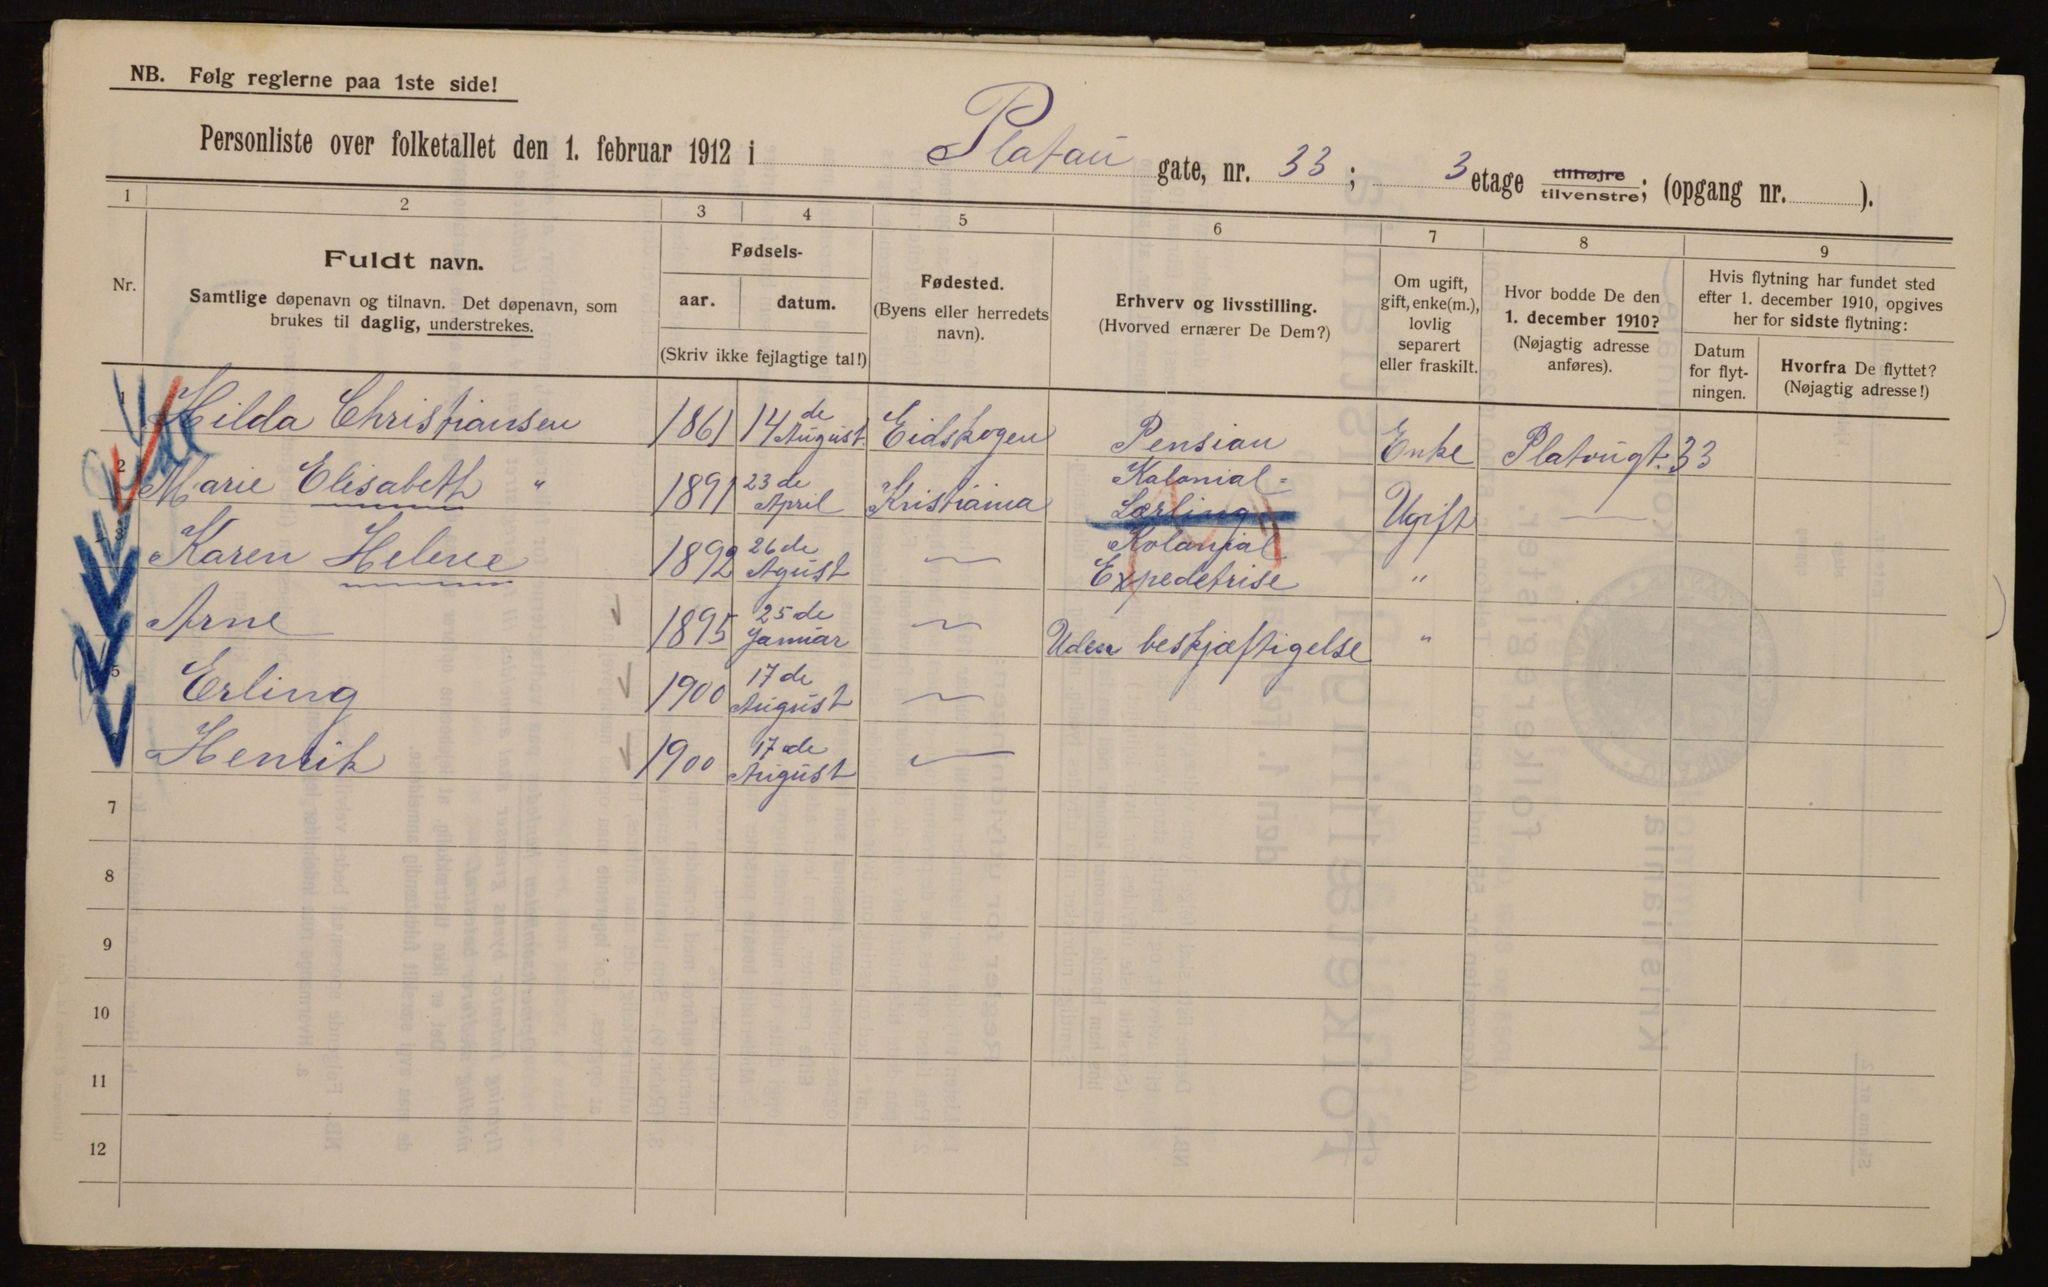 NB. Følg reglerne paa 1ste side!
Personliste over folketallet den 1. februar 1912 i Platou gate, nr. 33; 3 etage tilhøjre tilvenstre; (opgang nr. ).
1 2 3 4 5 6 7 8 9
Nr.
Fuldt navn.
Samtlige døpenavn og tilnavn. Det døpenavn, som
brukes til daglig, understrekes.
Fødsels-
aar. datum.
(Skriv ikke fejlagtige tal!)
Fødested.
(Byens eller herredets
navn).
Erhverv og livsstilling.
(Hvorved ernærer De Dem?)
Om ugift,
gift, enke(m.),
lovlig
separert
eller fraskilt.
Hvor bodde De den
1. december 1910?
(Nøjagtig adresse
anføres).
Hvis flytning har fundet sted
efter 1. december 1910, opgives
her for sidste flytning:
Datum
for flyt-
ningen.
Hvorfra De flyttet?
(Nøjagtig adresse!)
1 Hilda Christiansen 1861 14 de August Eidskogen Pension Enke Platougt. 33
2 Marie Elisabeth " 1891 23 de April Kristiania Kolonial- Lærling Ugift —
3 Karen Helene 1892 26 de Agust — Kolonial Expedetrise "
Arne 1895 25 de Januar — Uden beskjæftigelse "
5 Erling 1900 17 de August —
Henrik 1900 17 de August —
7
8
9
10
11
12